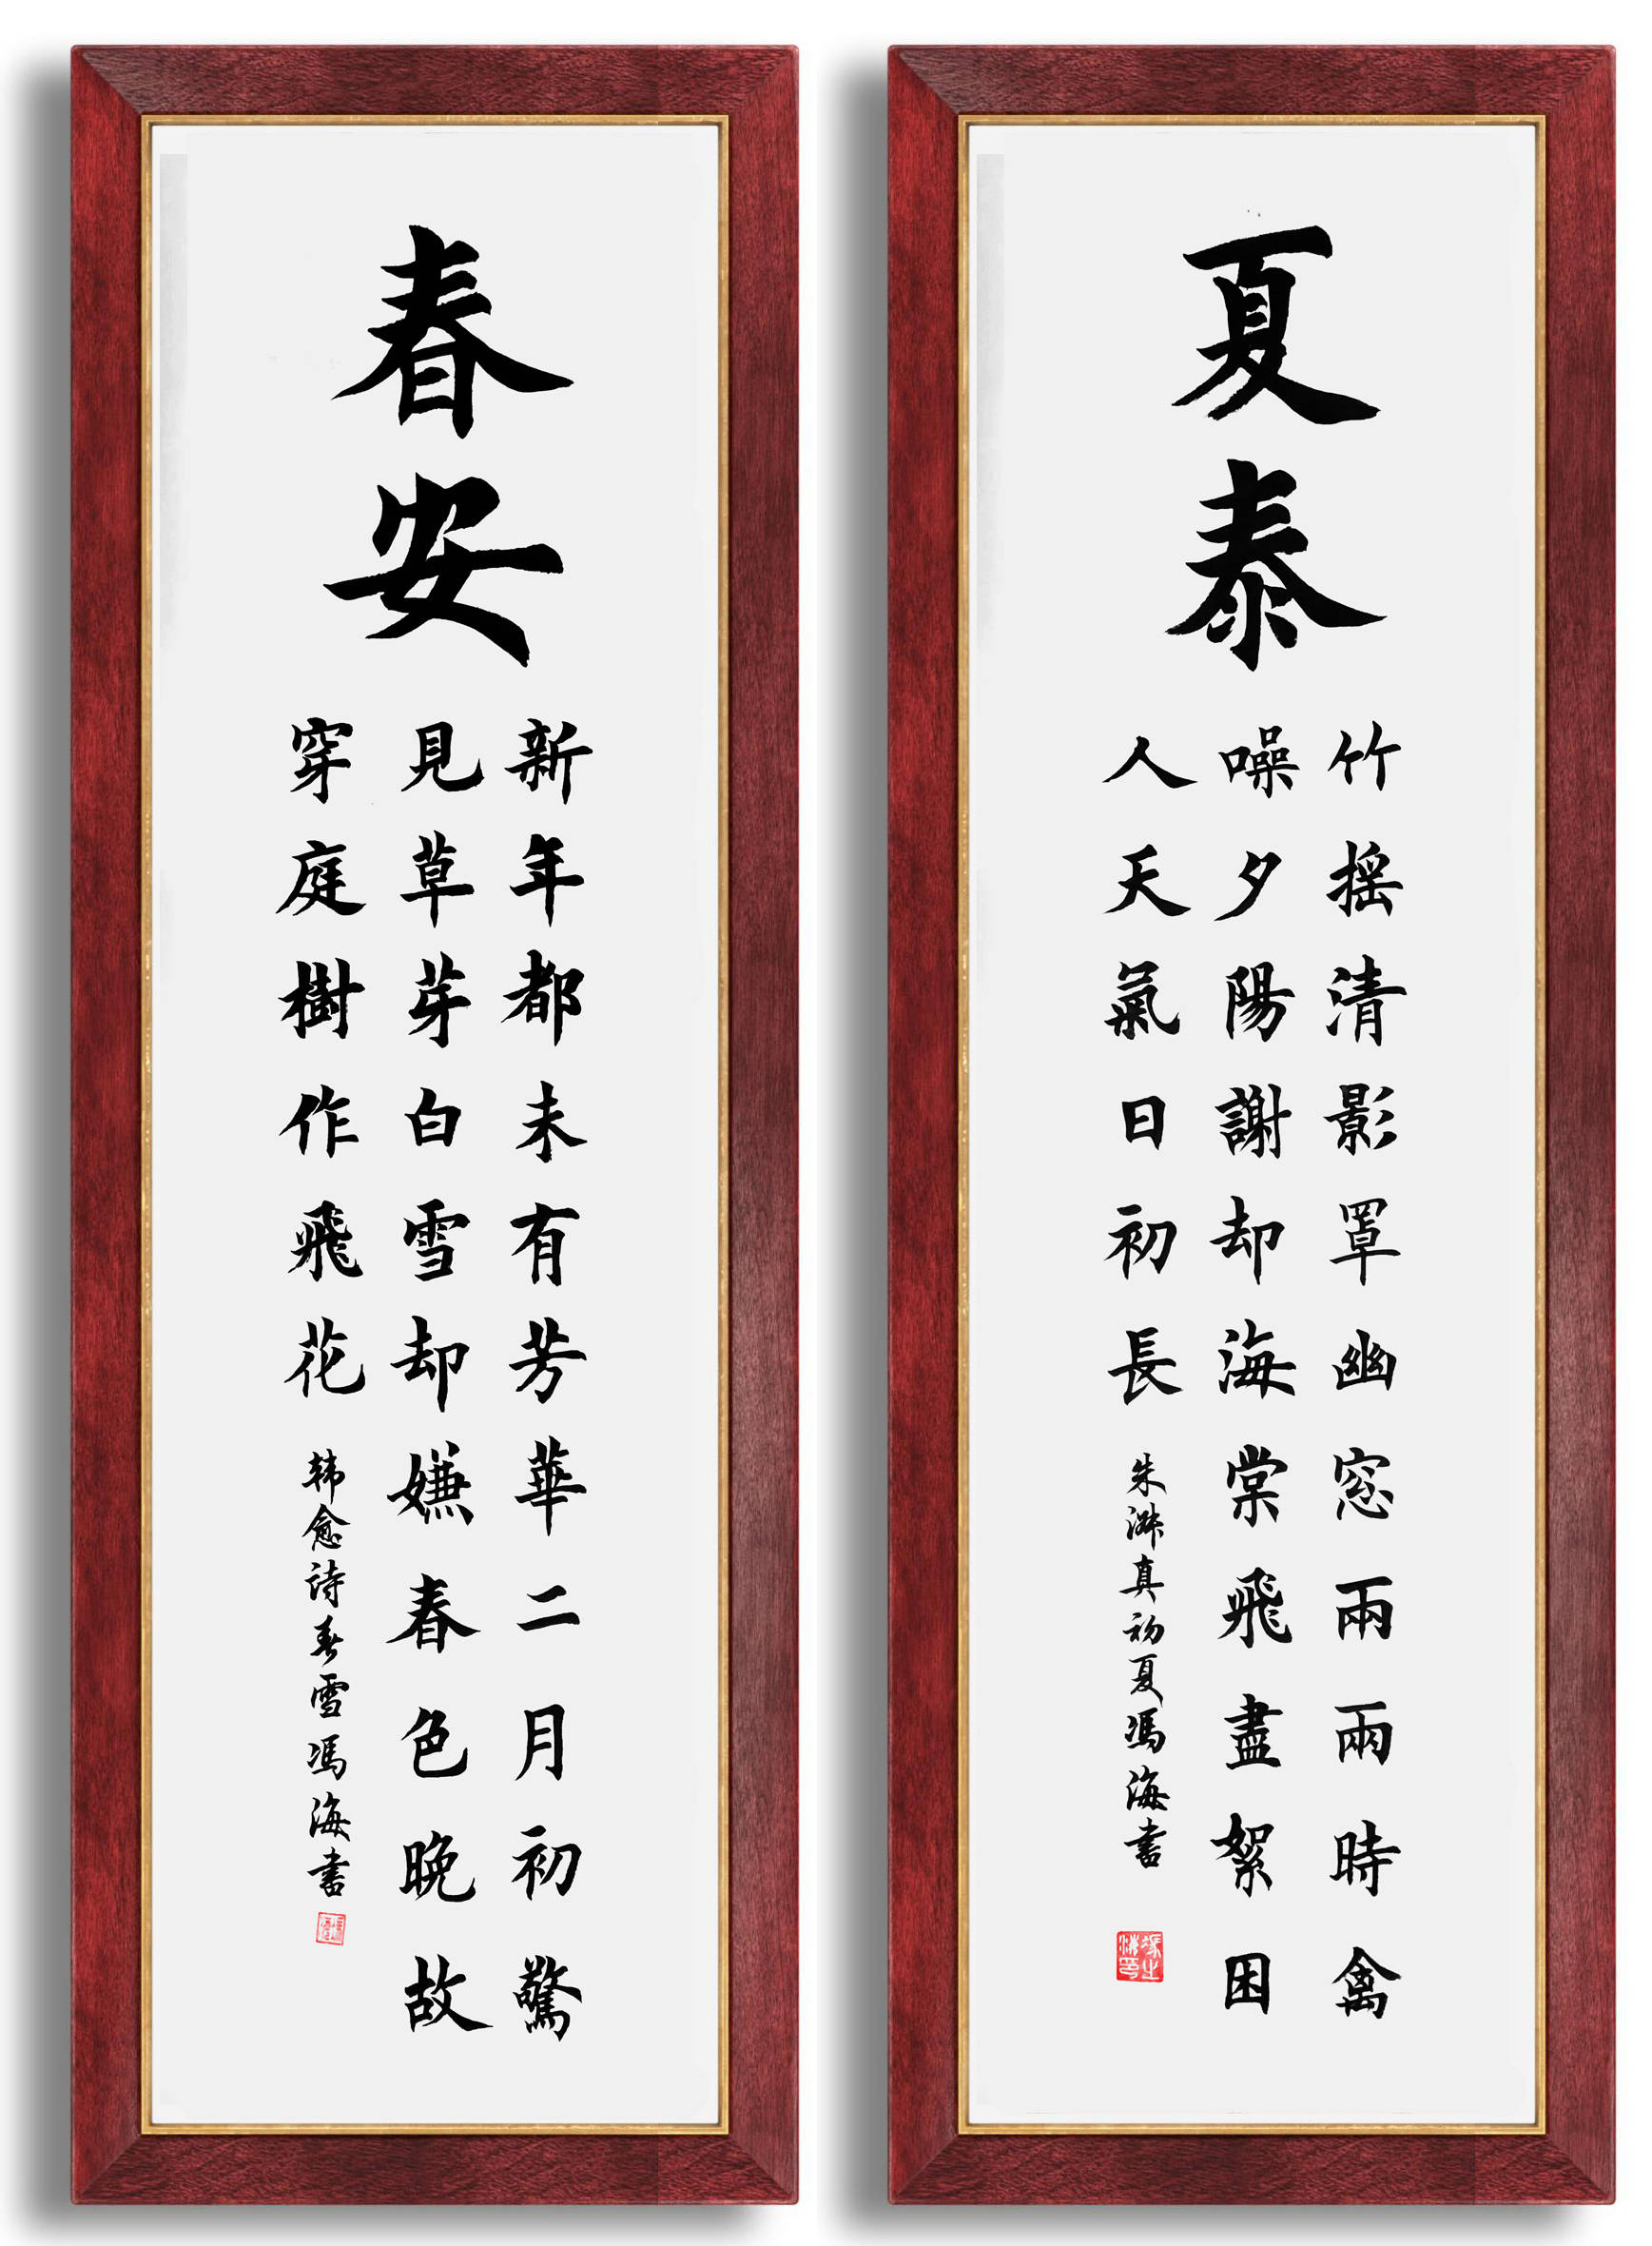 春安
新年都未有芳華二月初驚
見草芽白雪却嫌春色晚故
穿庭樹作飛花
韩愈诗春雪冯海书
夏泰
竹摇清影罩幽窓兩兩時禽
噪夕陽謝却海棠飛盡絮困
人天氣日初長
朱淑真初夏冯海书